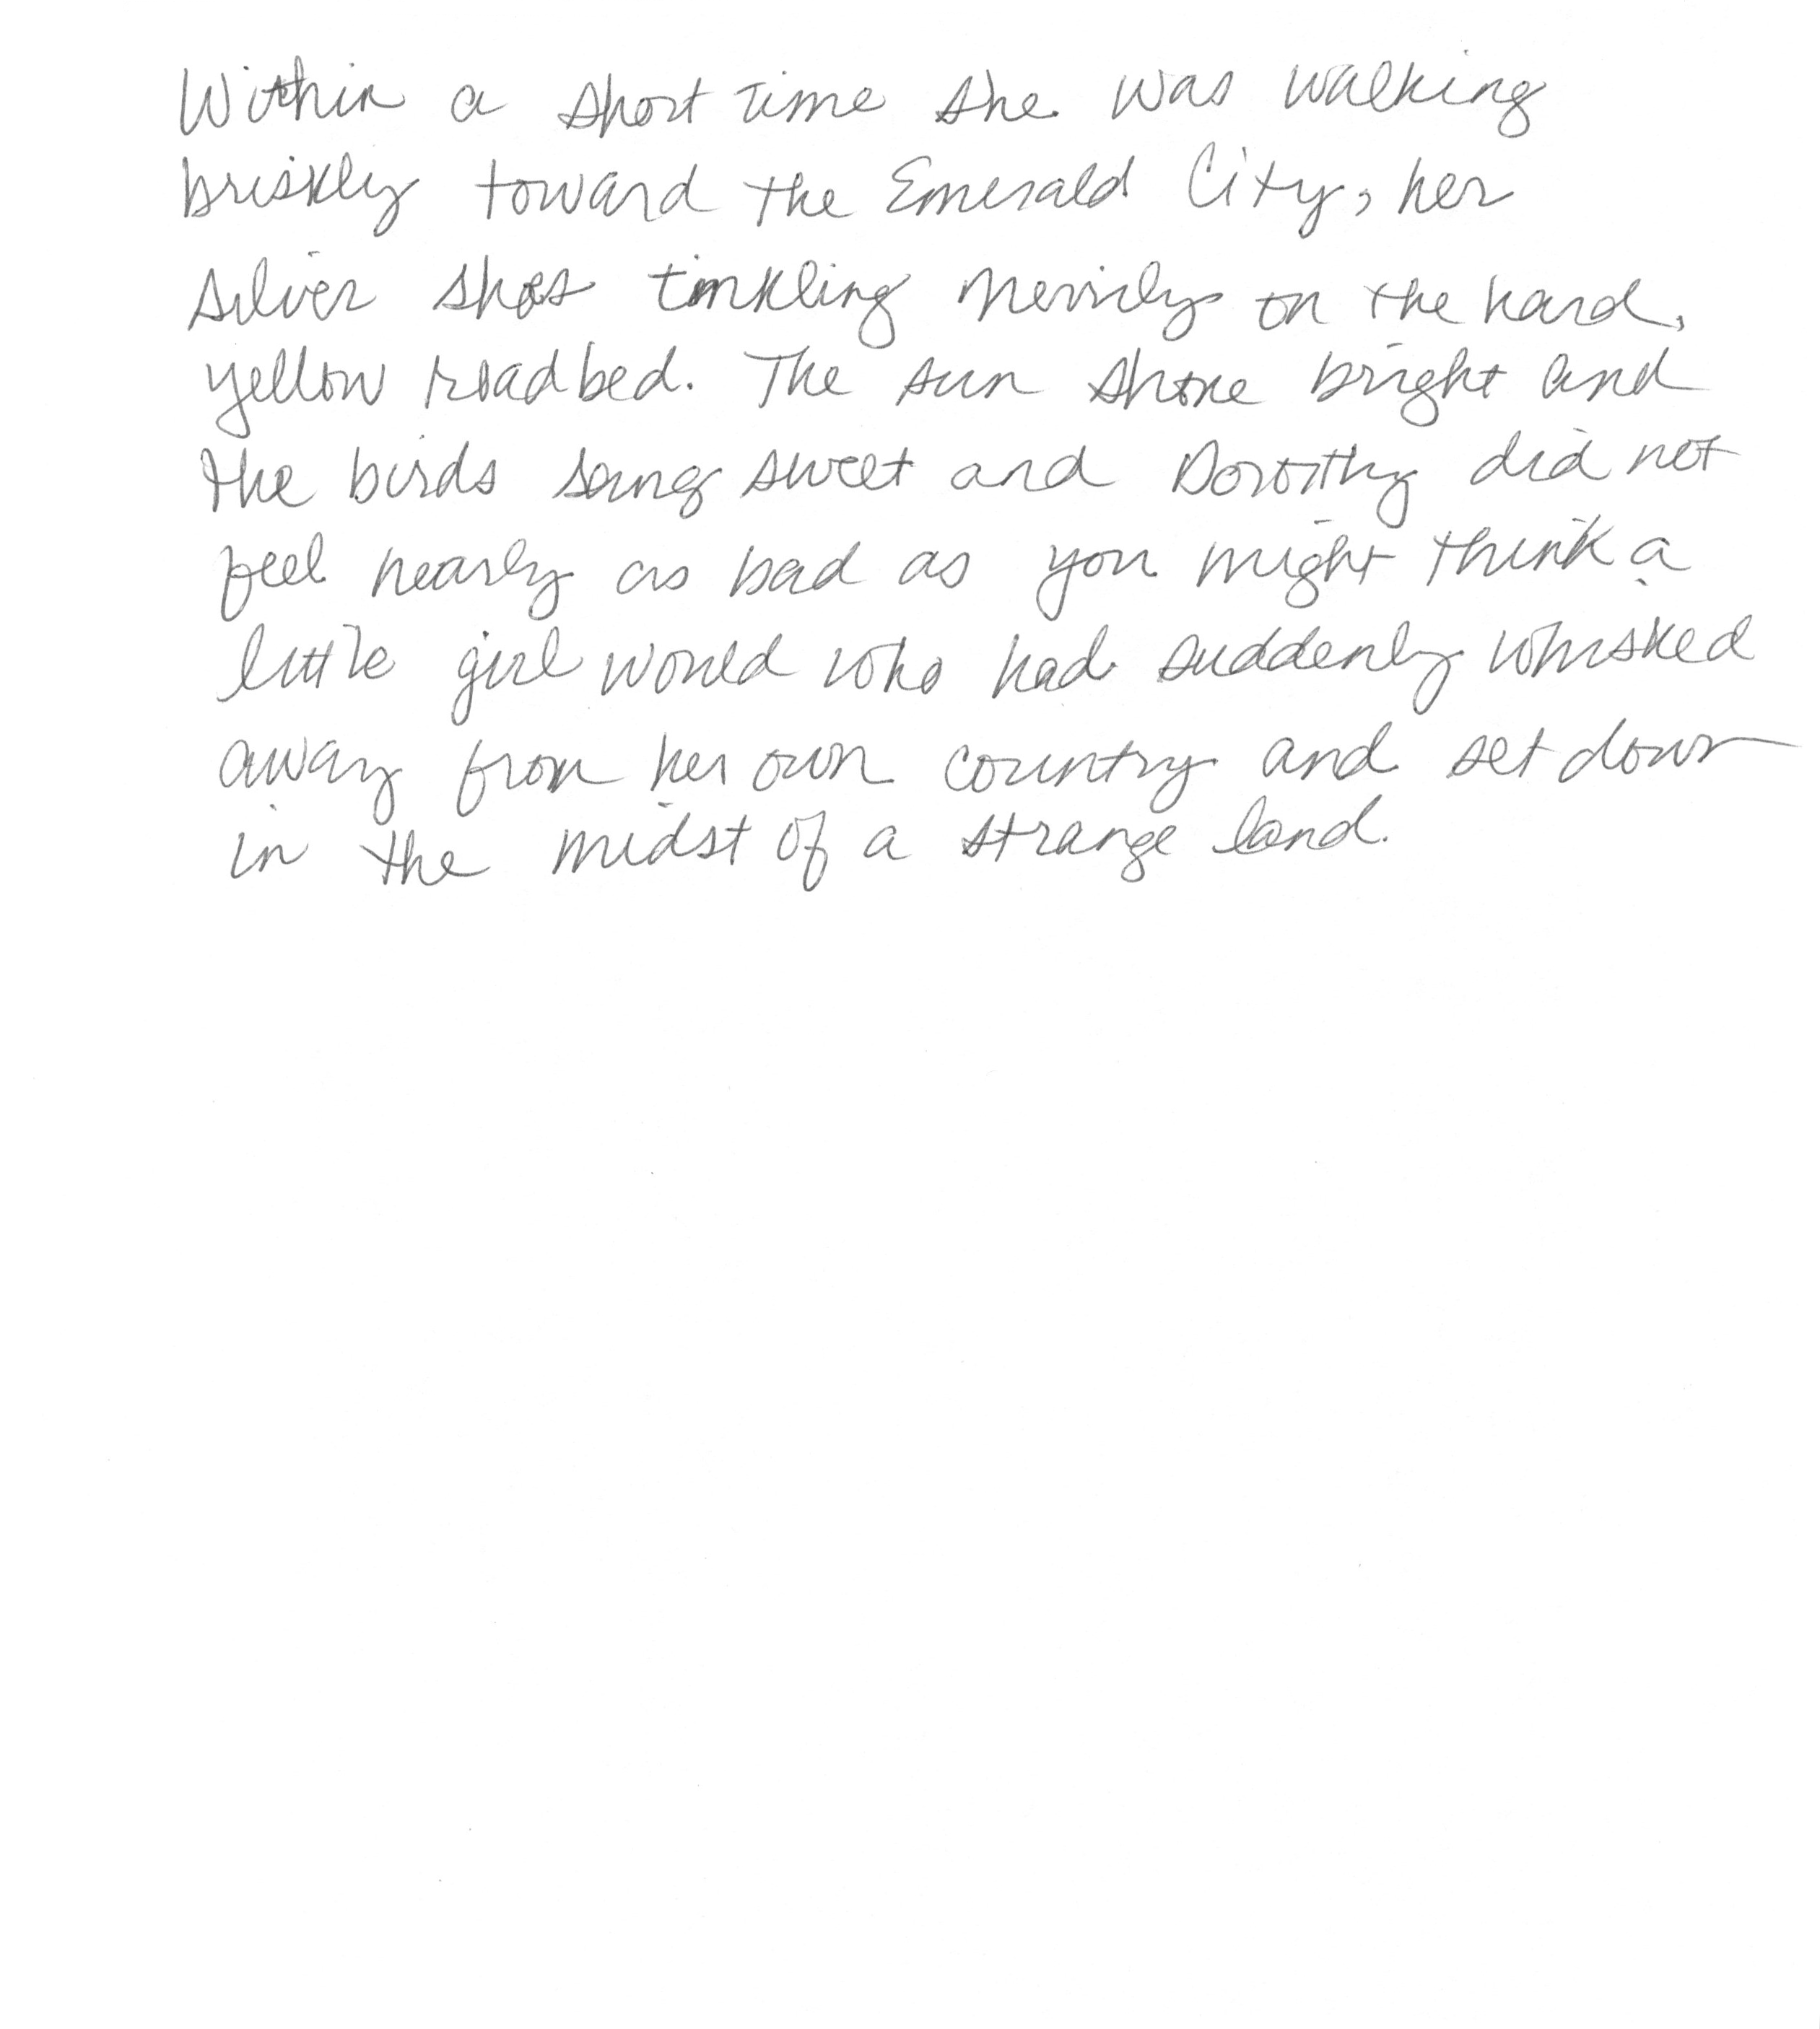 Within a short time she was walking
briskly toward the Emerald City, her
silver shoes tinkling merrily on the hard,
yellow roadbed. The sun shone bright and
the birds sang sweet and Dorothy did not
feel nearly as bad as you might think a
little girl would who had suddenly whisked
away from her own country and set down
in the midst of a strange land.